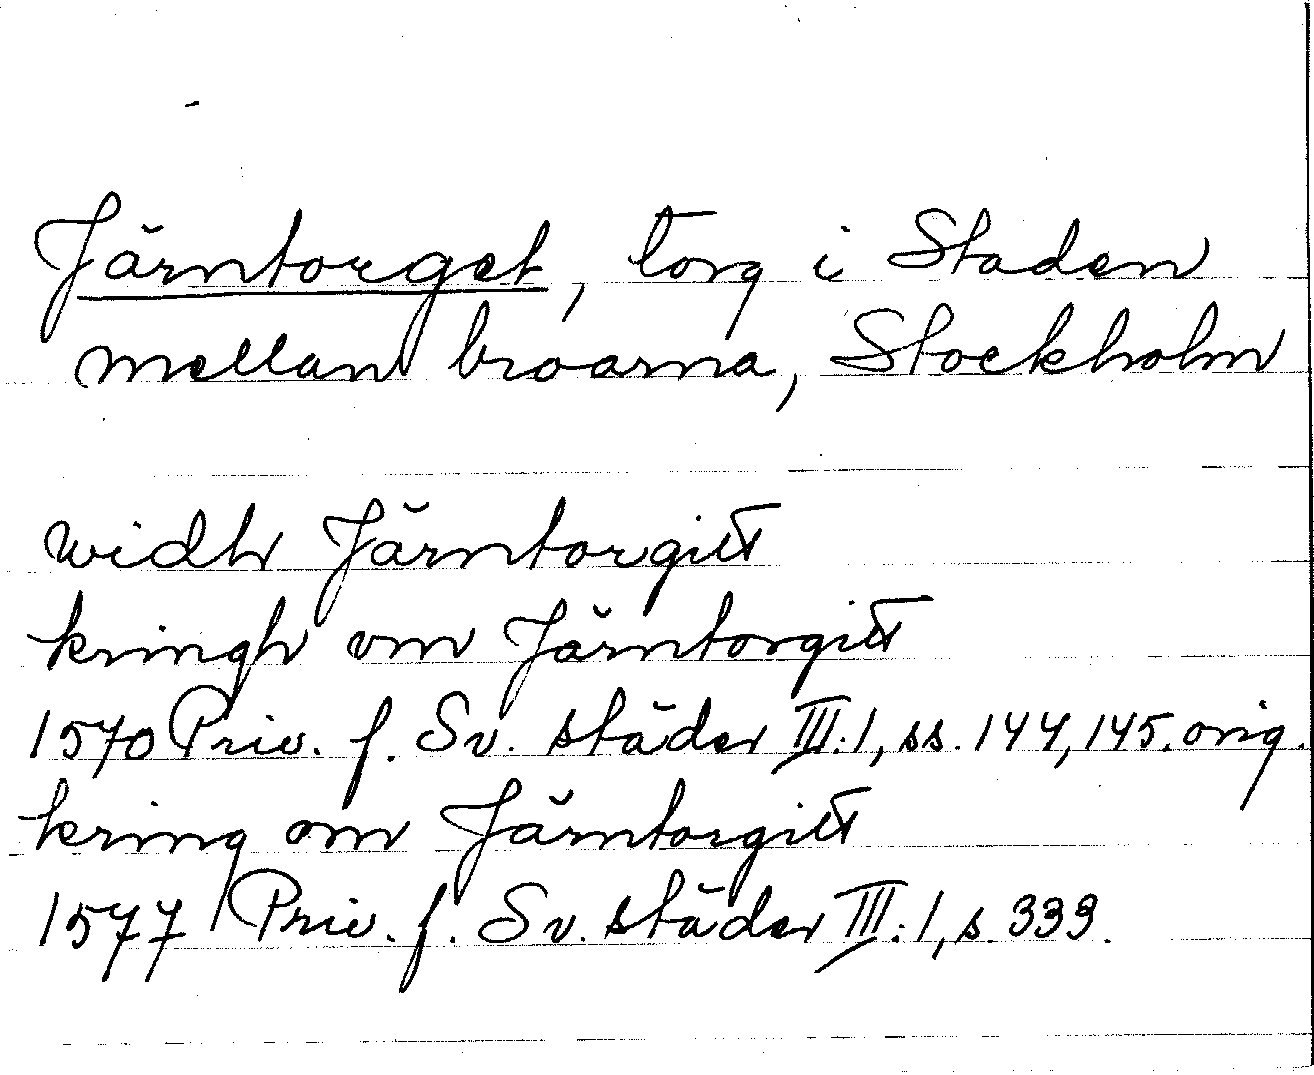 Järntorget, torg i Staden
mellan broarna, Stockholm
widh Järntorgitt
kringh om Järntorgitt
1570 Priv. f. Sv. städer III:1, ss. 144, 145. orig.
kring om Järntorgitt
1577 Priv. f. Sv. städer III:1, s. 333.